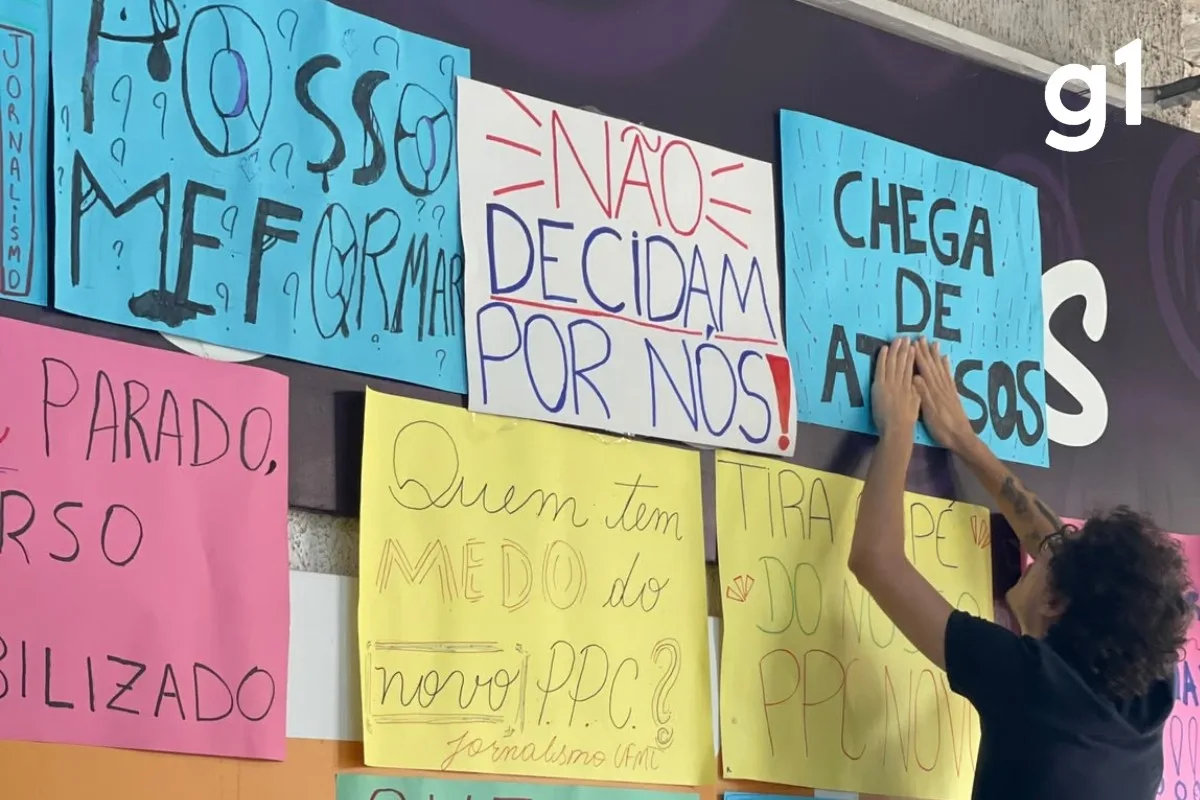 JORNALISMO
POSSO
ME FORMAR
NÃO
DECIDAM
POR NÓS!
CHEGA
DE
ATRASOS
g1
S
PARADO,
RSO
BILIZADO
Quem tem
MEDO do
novo P.P.C.?
jornalismo UFMT
TIRA PÉ
DO NOSSO
PPC NOVO